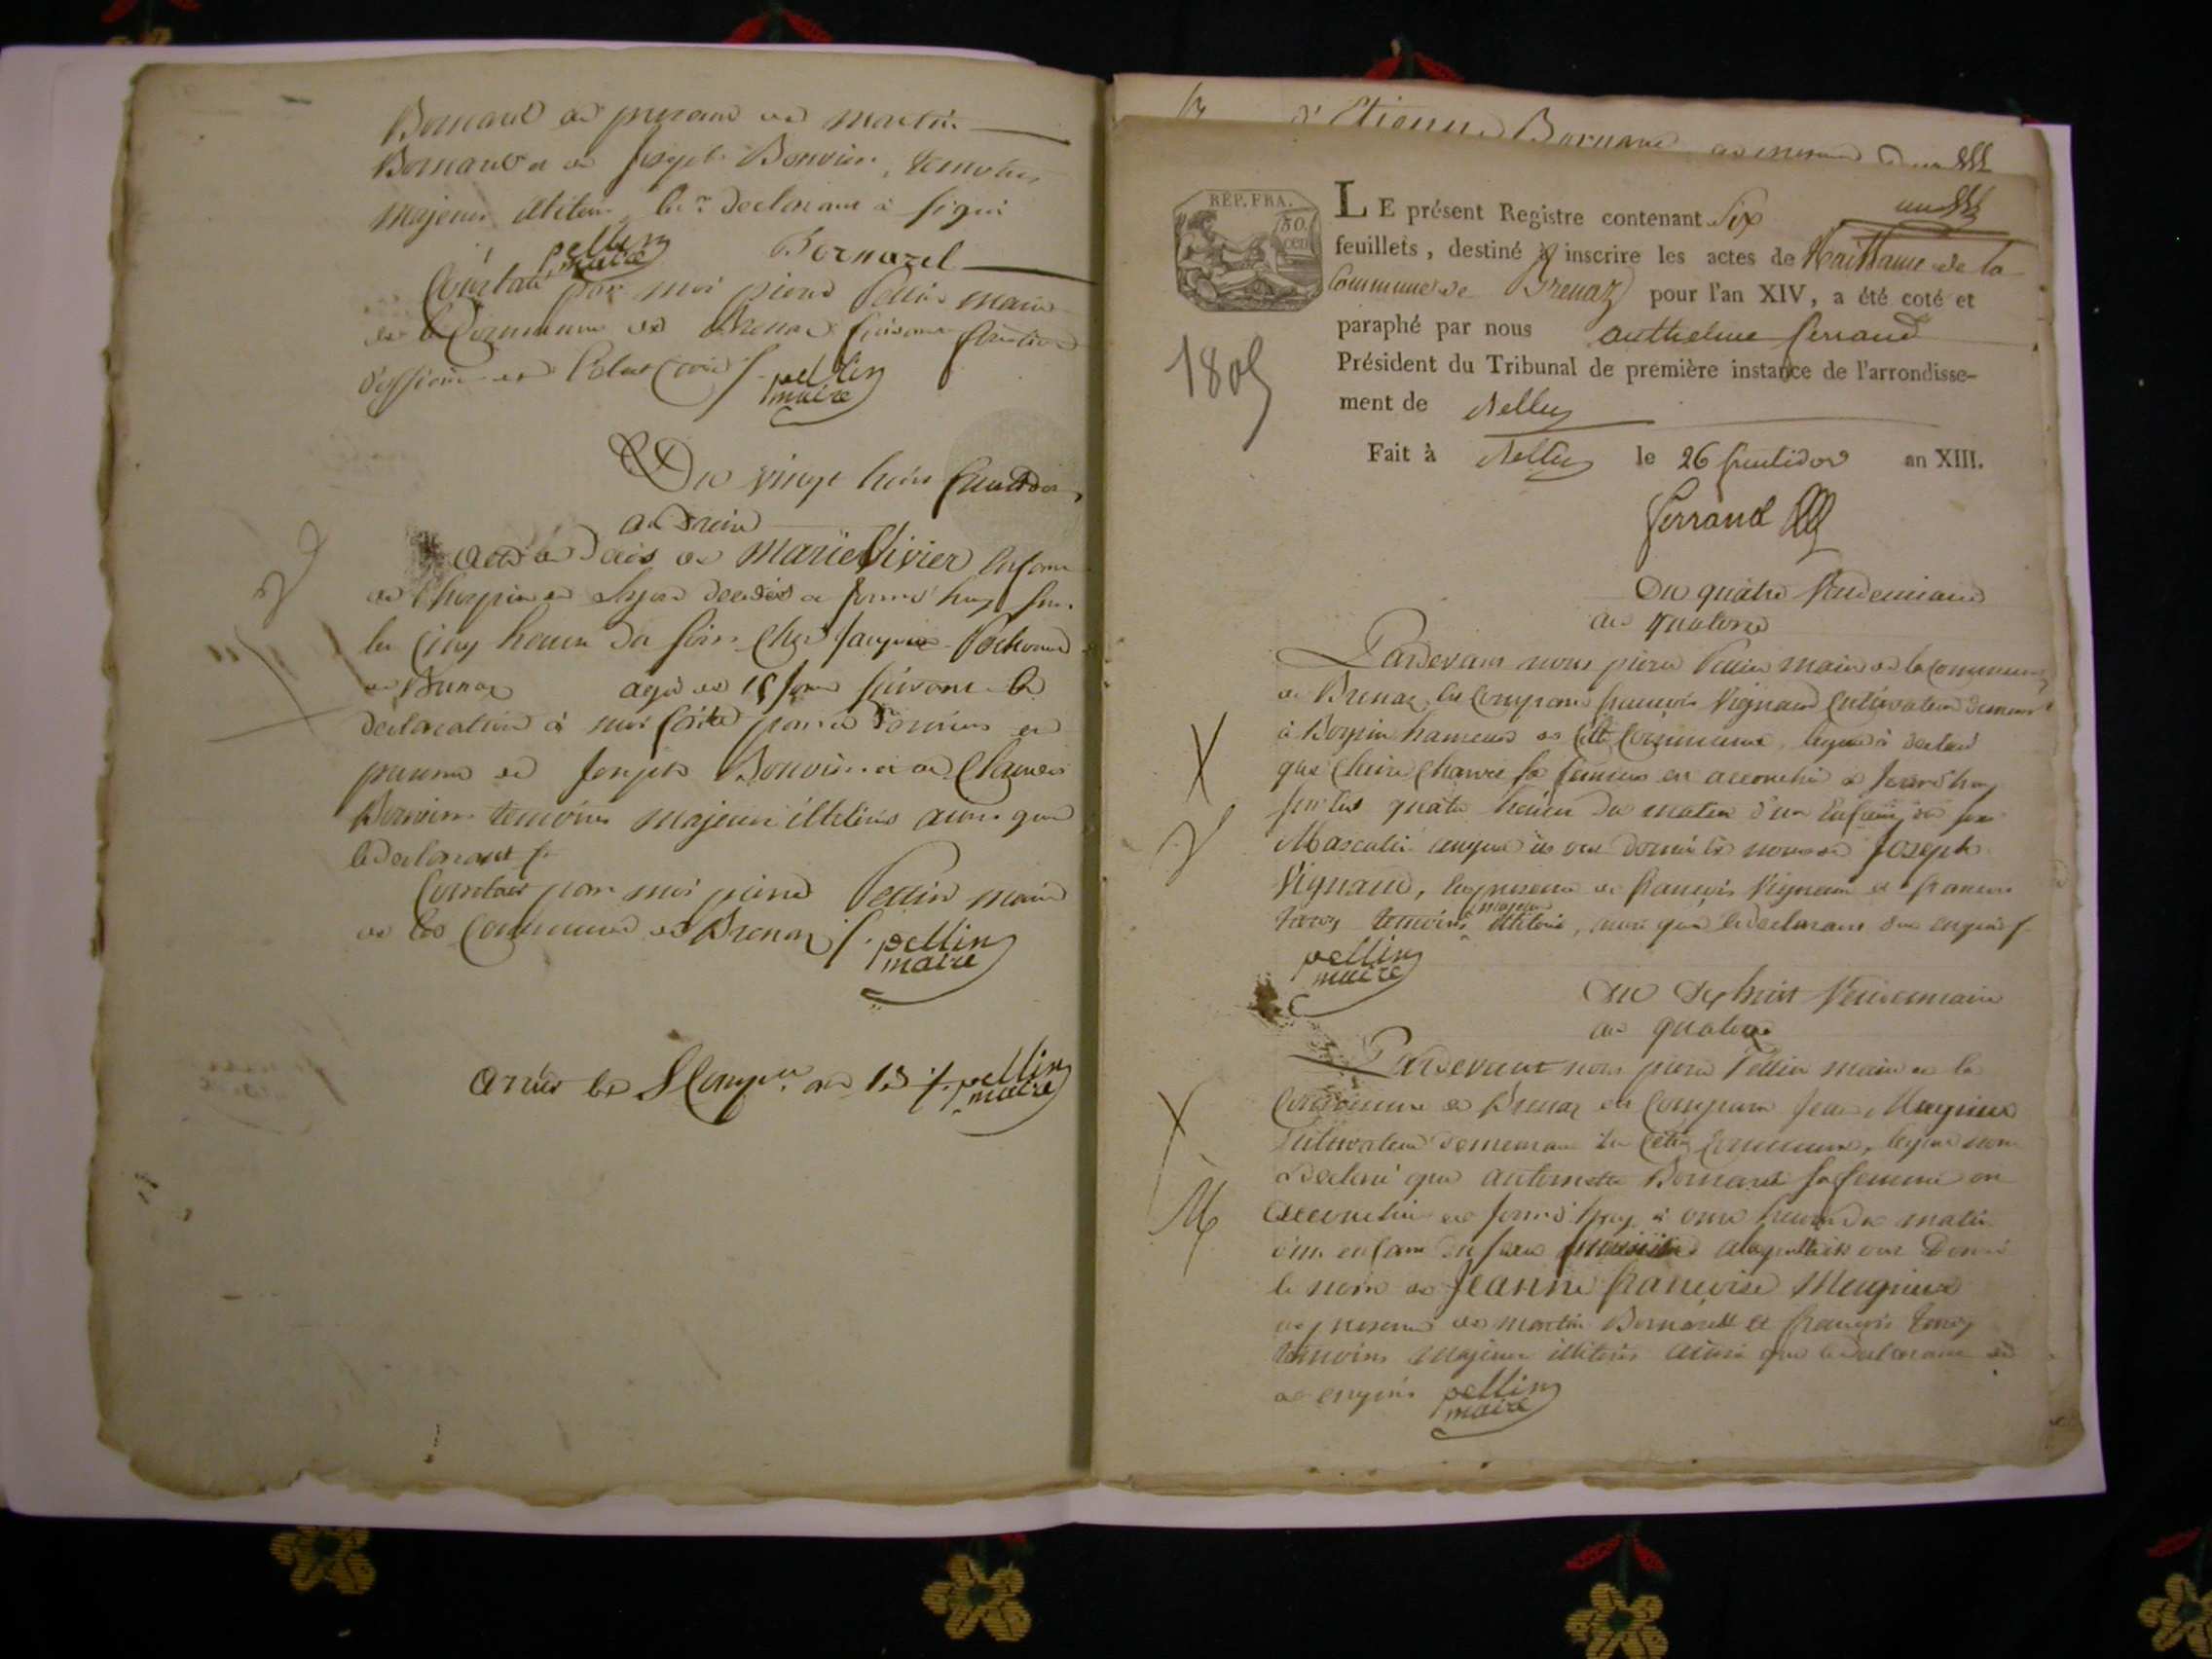 Bornard en presence de martin
Bornard et de Joseph Bonvier, temoins
majeurs illiteres le declarant à signé
pellin maire Bornard
Constaté par moi pierre Pellin maire
de la Commune de Brenaz faisant fonction
d'officier de l'etat civil pellin maire
Du vingt huit fructidor
an treize
acte de décès de Marie Vivier enfant
de l'hospice de Lyon decedé à jourd'huy sur
les cinq heures du soir chez Jacques
de Brenaz agé de 15 jours suivant la
declaration à moi faite par le
presence de Joseph Bonvier et de Claude
Bonvier temoins majeurs illiteres ainsi que
le declarant
Constaté par moi pierre Pellin maire
de la Commune de Brenaz pellin
maire
arrêté le 5 Compre. an 13 pellin
maire
d'Etienne Bornard en presence
RÉP. FRA.
50. cen
LE présent Registre contenant Six
feuillets, destiné à inscrire les actes de Naissance de la
Commune de Brenaz pour l'an XIV, a été coté et
paraphé par nous anthelme ferrand
Président du Tribunal de première instance de l'arrondisse-
ment de Belley
1805
Fait à Belley le 26 fructidor an XIII.
ferrand
Du quatre Vendemiaire
an quatorze
Pardevant nous pierre Pellin maire de la Commune
de Brenaz, est comparu françois Vignand Cultivateur demeurant
à Boyrin hameau de cette Commune, lequel à declaré
que Claire Charvet sa femme est accouchée à jourd'huy
sur les quatre heures du matin d'un enfant du sexe
Masculin auquel ils ont donné le nom de Joseph
Vignand, en presence de françois Vignand et françois
temoins majeurs illiteres, ainsi que le declarant de ce enquis
pellin
maire
Du dix huit Vendemiaire
an quatorze
Pardevant nous pierre Pellin maire de la
Commune de Brenaz est comparu Jean Mugnier
Cultivateur demeurant en cette Commune, lequel nous
a declaré que antoinette Bornard sa femme est
accouchée à jourd'huy à onze heures du matin
d'un enfant du sexe à laquelle ils ont donné
le nom de Jeanne françoise Mugnier
en presence de martin Bornard et françois
temoins majeurs illiteres ainsi que le declarant de
ce enquis pellin
maire